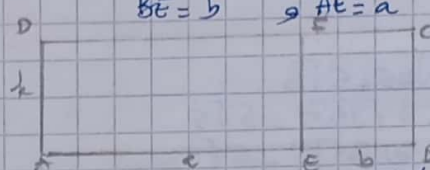 BE = b و AE = a
D F C
h
A a E b B